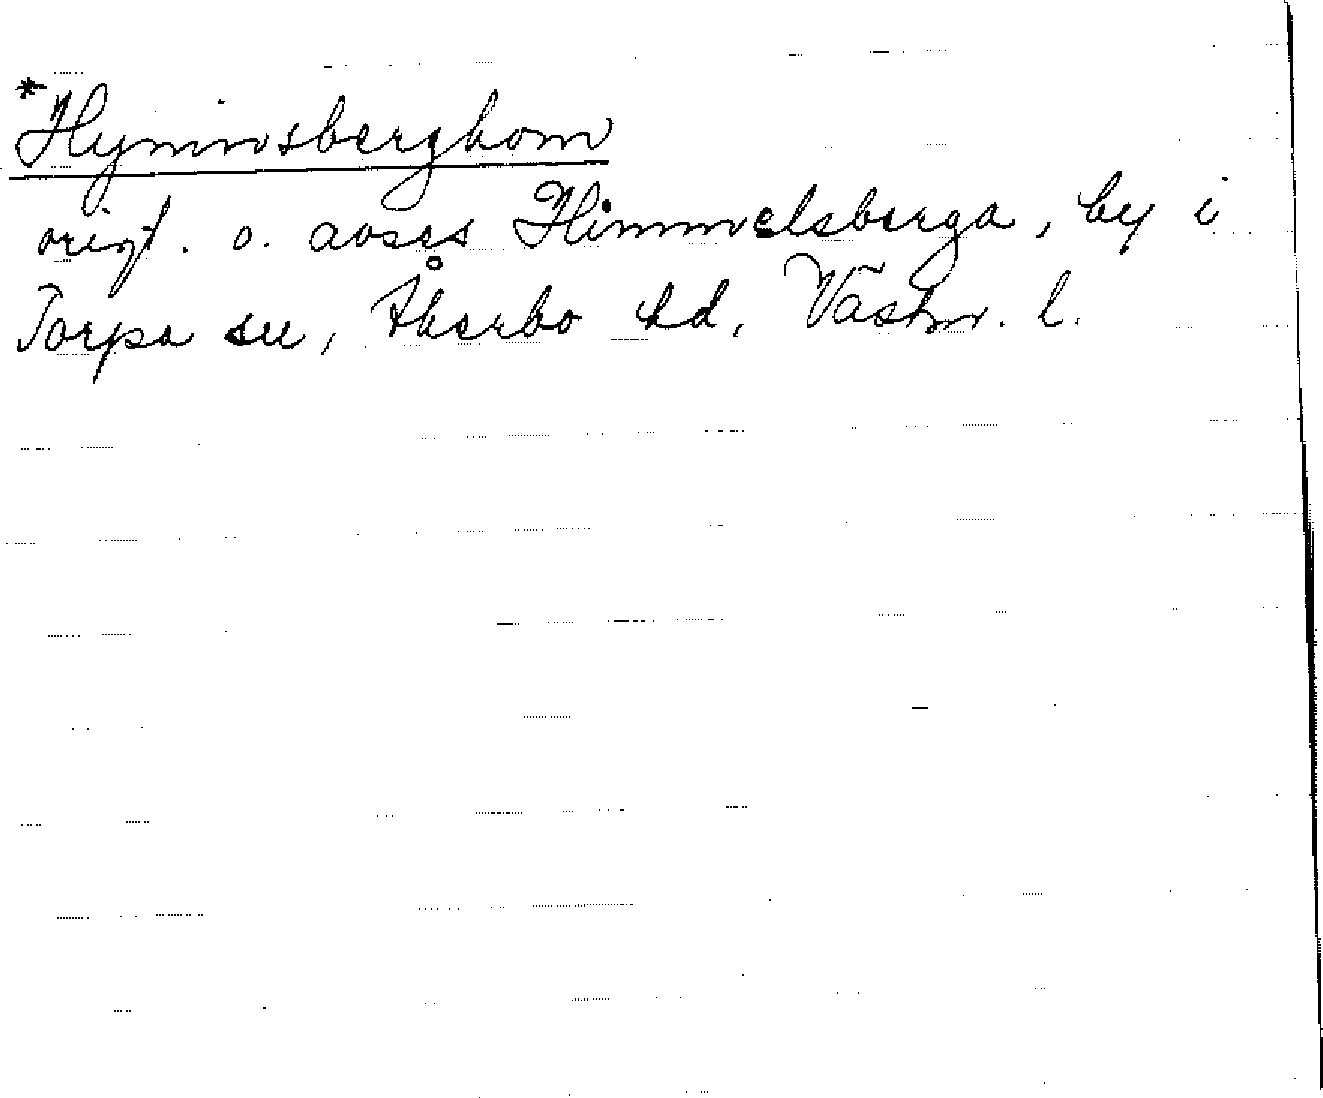 *Hyminsberghom
origt. o. avses Himmelsberga, by i
Torpa sn, Åkerbo hd, Västm. l.